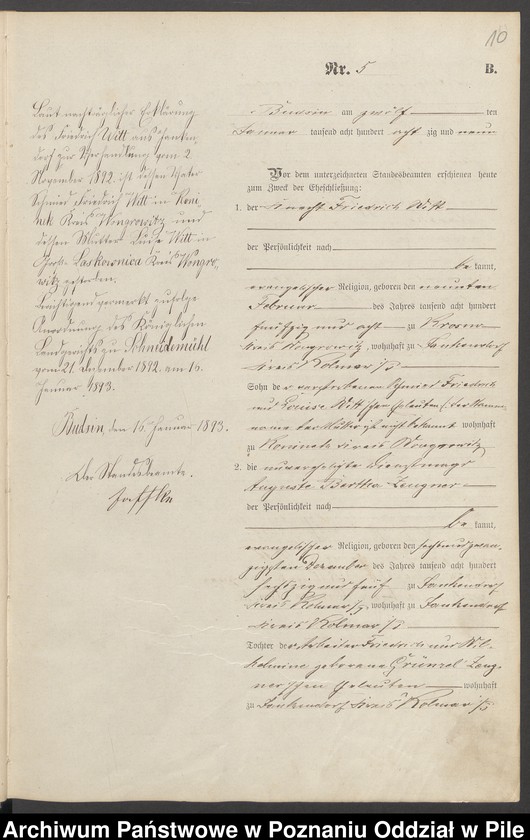 10
Nr. 5 B.
Laut nachträglicher Erklärung
des Friedrich Witt aus Janken-
dorf zur Verhandlung vom 2.
November 1892 ist dessen Vater
Schmied Friedrich Witt in Koni-
nek Kreis Wongrowitz und
dessen Mutter Luise Witt in
Laskownica Kreis Wongro-
witz gestorben.
vermerkt zufolge
Anordnung des Königlichen
Landgerichts zu Schneidemühl
vom 21. Dezember 1892 am 16.
Januar 1893.
Budsin, den 16. Januar 1893.
Der Standesbeamte.
Budsin am zwölf ten
Januar tausend acht hundert acht zig und neun
Vor dem unterzeichneten Standesbeamten erschienen heute
zum Zweck der Eheschließung:
1. der Knecht Friedrich Witt
der Persönlichkeit nach
be kannt,
evangelischer Religion, geboren den neunten
Februar des Jahres tausend acht hundert
fünfzig und acht zu
Kreis Wongrowitz, wohnhaft zu Jankendorf
Kreis Kolmar i/P.
Sohn des verstorbenen Schmied Friedrich
und Louise Witt'schen Eheleuten (der Mannes-
name der Mutter ist nicht bekannt wohnhaft
zu Koninek Kreis Wongrowitz
2. die unverehelichte Dienstmagd
Auguste Bertha Zeugner
der Persönlichkeit nach
be kannt,
evangelischer Religion, geboren den sechsundzwan-
zigsten Dezember des Jahres tausend acht hundert
sechszig und fünf zu Jankendorf
Kreis Kolmar i/P., wohnhaft zu Jankendorf
Kreis Kolmar i/P.
Tochter der Arbeiter Friedrich und Wil-
helmine geborene Grünzel Zeug-
ner'schen Eheleuten wohnhaft
zu Jankendorf Kreis Kolmar i/P.
Archiwum Państwowe w Poznaniu Oddział w Pile